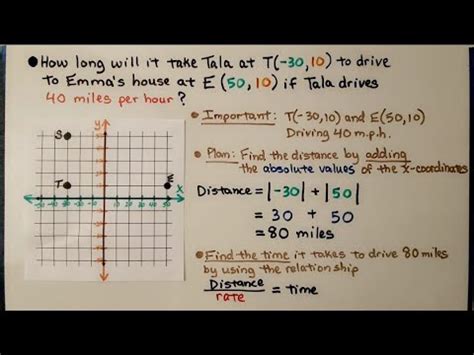 How long will it take Tala at T(-30,10) to drive
to Emma's house at E (50,10) if Tala drives
40 miles per hour?
Important: T(-30,10) and E(50,10)
Driving 40 m.p.h.
Plan: Find the distance by adding
the absolute values of the x-coordinates
Distance = |-30| + |50|
= 30 + 50
= 80 miles
Find the time it takes to drive 80 miles
by using the relationship
Distance = time
rate
y
S
T
E
x